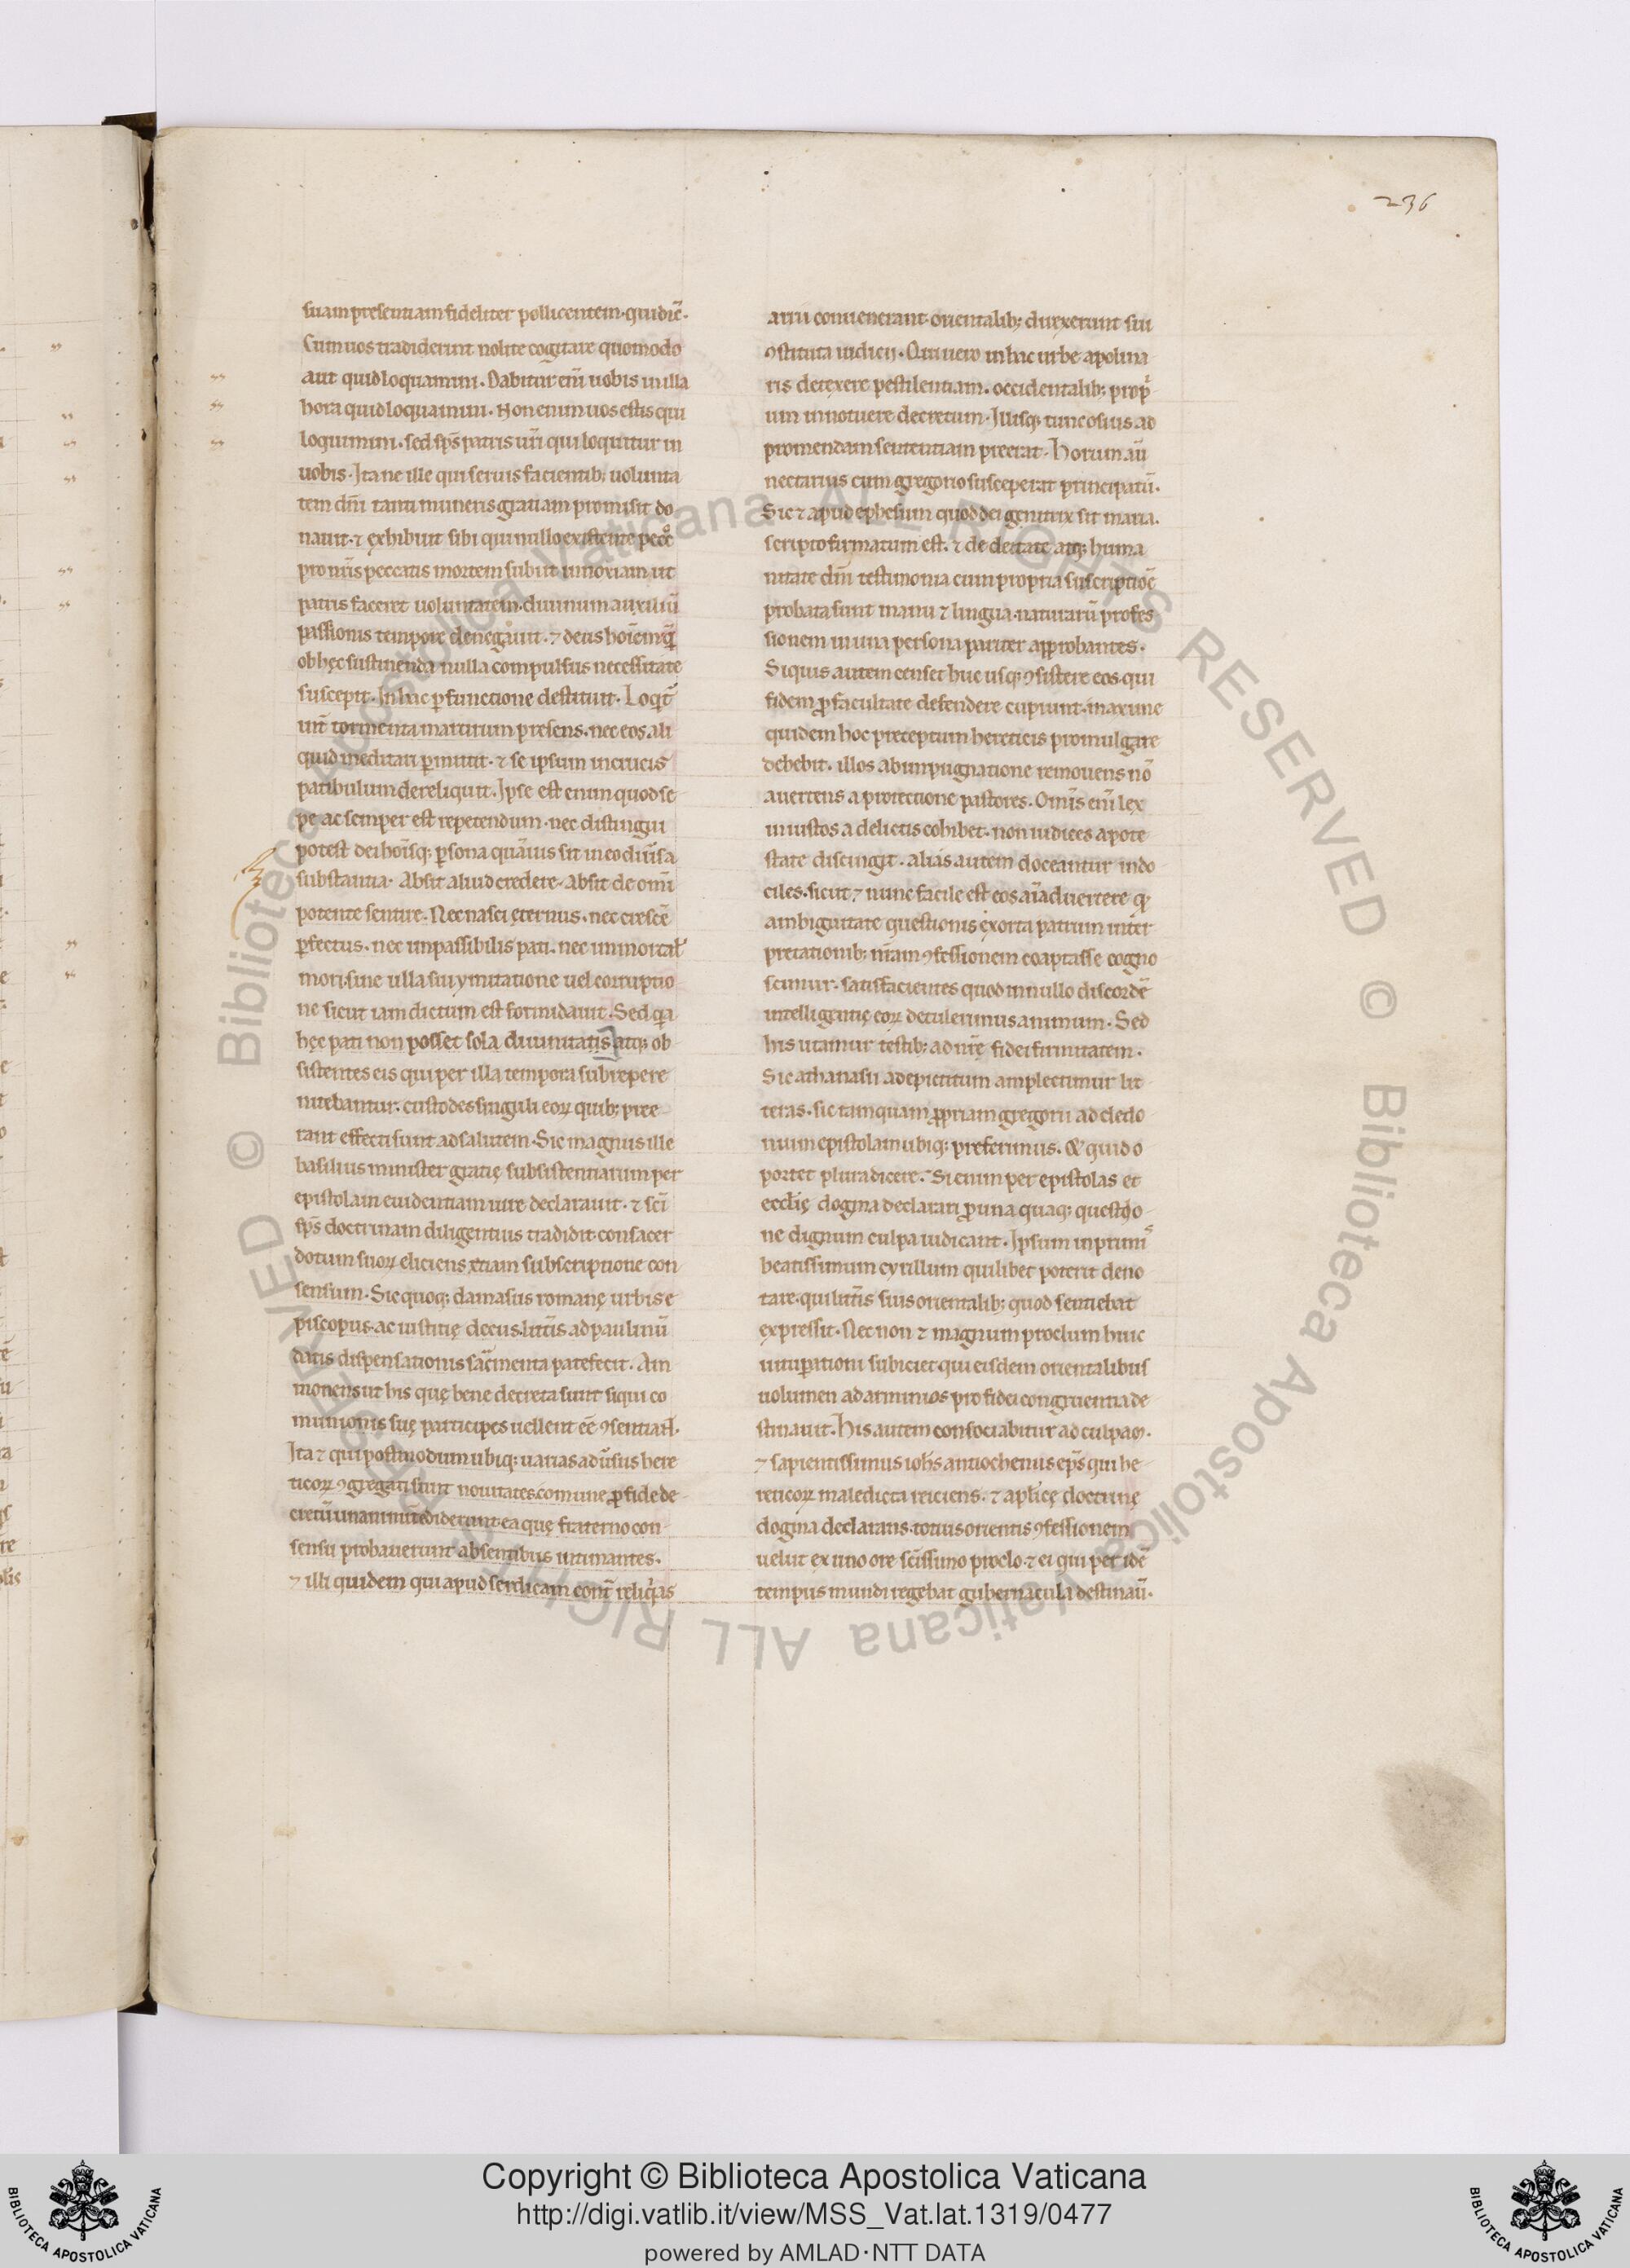 236
suam presentiam fideliter pollicentem. qui dic̄.
Cum uos tradiderint nolite cogitare quomodo
aut quid loquamini. Dabitur eni̅ uobis in illa
hora quid loquamini. Non enim uos estis qui
loquimini. sed sps̄ patris ur̄i qui loquitur in
uobis. Itane ille qui seruis facientib; uolunta
tem dn̄i tanti muneris gratiam promisit do
nauit. ⁊ exhibuit sibi qui nullo existente
pro nr̄is peccatis mortem subiit
patris faceret uoluntatem. diuinum auxiliū
passionis tempore denegauit. ⁊ deus
ob hęc sustinenda nulla compulsus necessitate
suscepit. In hac ꝑfunctione destituit.
tormenta martirum presens. nec eos ali
quid meditari ꝑmittit. ⁊ se ipsum in crucis
patibulum dereliquit. Ipse est enim quod se
pe ac semper est repetendum. nec distingui
potest dei hoīsq; ꝑsona quāuis sit in eo diūsa
substantia. Absit aliud credere. Absit de omī
potente sentire. Nec nasci ęternus. nec crescē
ꝑfectus. nec inpassibilis pati. nec inmortal̄
mori. siue ulla sui mutatione uel corruptio
ne sicut iam dictum est formidauit. Sed
hęc pati non posset sola diuinitatis atq; ob
sistentes eis qui per illa tempora subrepere
nitebantur. custodes singuli eoꝝ quib; pree
rant effecti sunt ad salutem. Sic magnus ille
basilius minister gratię subsistentiarum per
epistolam euidentiam iure declarauit. ⁊ sc̄i
sps̄ doctrinam diligentius tradidit consacer
dotum suoꝝ eliciens etiam subscriptione con
sensum. Sic quoq; damasus romanę urbis e
piscopus. ac iustitię decus. litt̄is ad paulinū
datis dispensationis sac̄menta patefecit. Am
monens ut his quę bene decreta sunt siqui co
munionis suę participes uellent eē ꝯsentiant.
Ita ⁊ qui postmodum ubiq; uarias adūsus here
ticoꝝ ꝯgregati sunt nouitates. comune ꝓ fide de
cretū unanimit̄ ediderunt. ea quę fraterno con
sensu probauerunt absentibus intimantes.
⁊ illi quidem qui apud serdicam cont̄ reliquias
arrii conuenerant. orientalib; direxerunt sui
ꝯstituta iudicii. Qui uero in hac urbe apolina
ris detexere pestilentiam. occidentalib; propͥ
um innotuere decretum. Illisq; tunc osius ad
promendam sententiam preerat. Horum aū
nectarius cum gregorio susceperat principatū.
Sic ⁊ apud ephesum quod dei genitrix sit maria.
scripto firmatum est. ⁊ de deitate atq; huma
nitate dn̄i testimonia cum propria suscriptiōe
probata sunt manu ⁊ lingua. naturarū profes
sionem in una persona pariter approbantes.
Siquis autem censet huc usq; ꝯsistere eos qui
fidem ꝓ facultate defendere cupiunt. maxime
quidem hoc preceptum hereticis promulgare
debebit. illos ab inpugnatione remouens nō
auertens a protectione pastores. Omīs eni̅ lex
iniustos a delictis cohibet. non iudices a pote
state discingit. alias autem doceantur indo
ciles. sicut ⁊ nunc facile est eos aīaduertere
ambiguitate questionis exorta patrum inter
pretationib; nr̄am ꝯfessionem coaptasse cogno
scimur. satisfacientes quod in nullo discordē
intelligentię eoꝝ detulerimus animum. Sed
his utamur testib; ad nr̄ę fidei firmitatem.
Sic athanasii ad epictitum amplectimur lit
teras. sic tamquam ꝓpriam gregorii ad cledo
nium epistolam ubiq; preferimus. Et quid o
portet plura dicere. Si enim per epistolas et
eccl̄ię dogma declarari ꝓ una quaq; questio
ne dignum culpa iudicant. Ipsum in primis
beatissimum cyrillum quilibet poterit deno
tare. qui litt̄is suis orientalib; quod sentiebat
expressit. Nec non ⁊ magnum proclum huic
uituꝑationi subiciet qui eisdem orientalibus
uolumen ad arminios pro fidei congruentia de
stinauit. His autem consociabitur ad culpam.
⁊ sapientissimus ioh̄s antiochenus ep̄s qui he
reticoꝝ maledicta reiciens. ⁊ aplicę doctrinę
dogma declarans. totius orientis ꝯfessionem
uelut ex uno ore sc̄issimo proclo. ⁊ ei qui per idē
tempus mundi regebat gubernacula destinau̅.
Copyright © Biblioteca Apostolica Vaticana
http://digi.vatlib.it/view/MSS_Vat.lat.1319/0477
powered by AMLAD·NTT DATA
BIBLIOTECA APOSTOLICA VATICANA
BIBLIOTECA APOSTOLICA VATICANA
© Biblioteca Apostolica Vaticana ALL RIGHTS RESERVED © Biblioteca Apostolica Vaticana ALL RIGHTS RESERVED